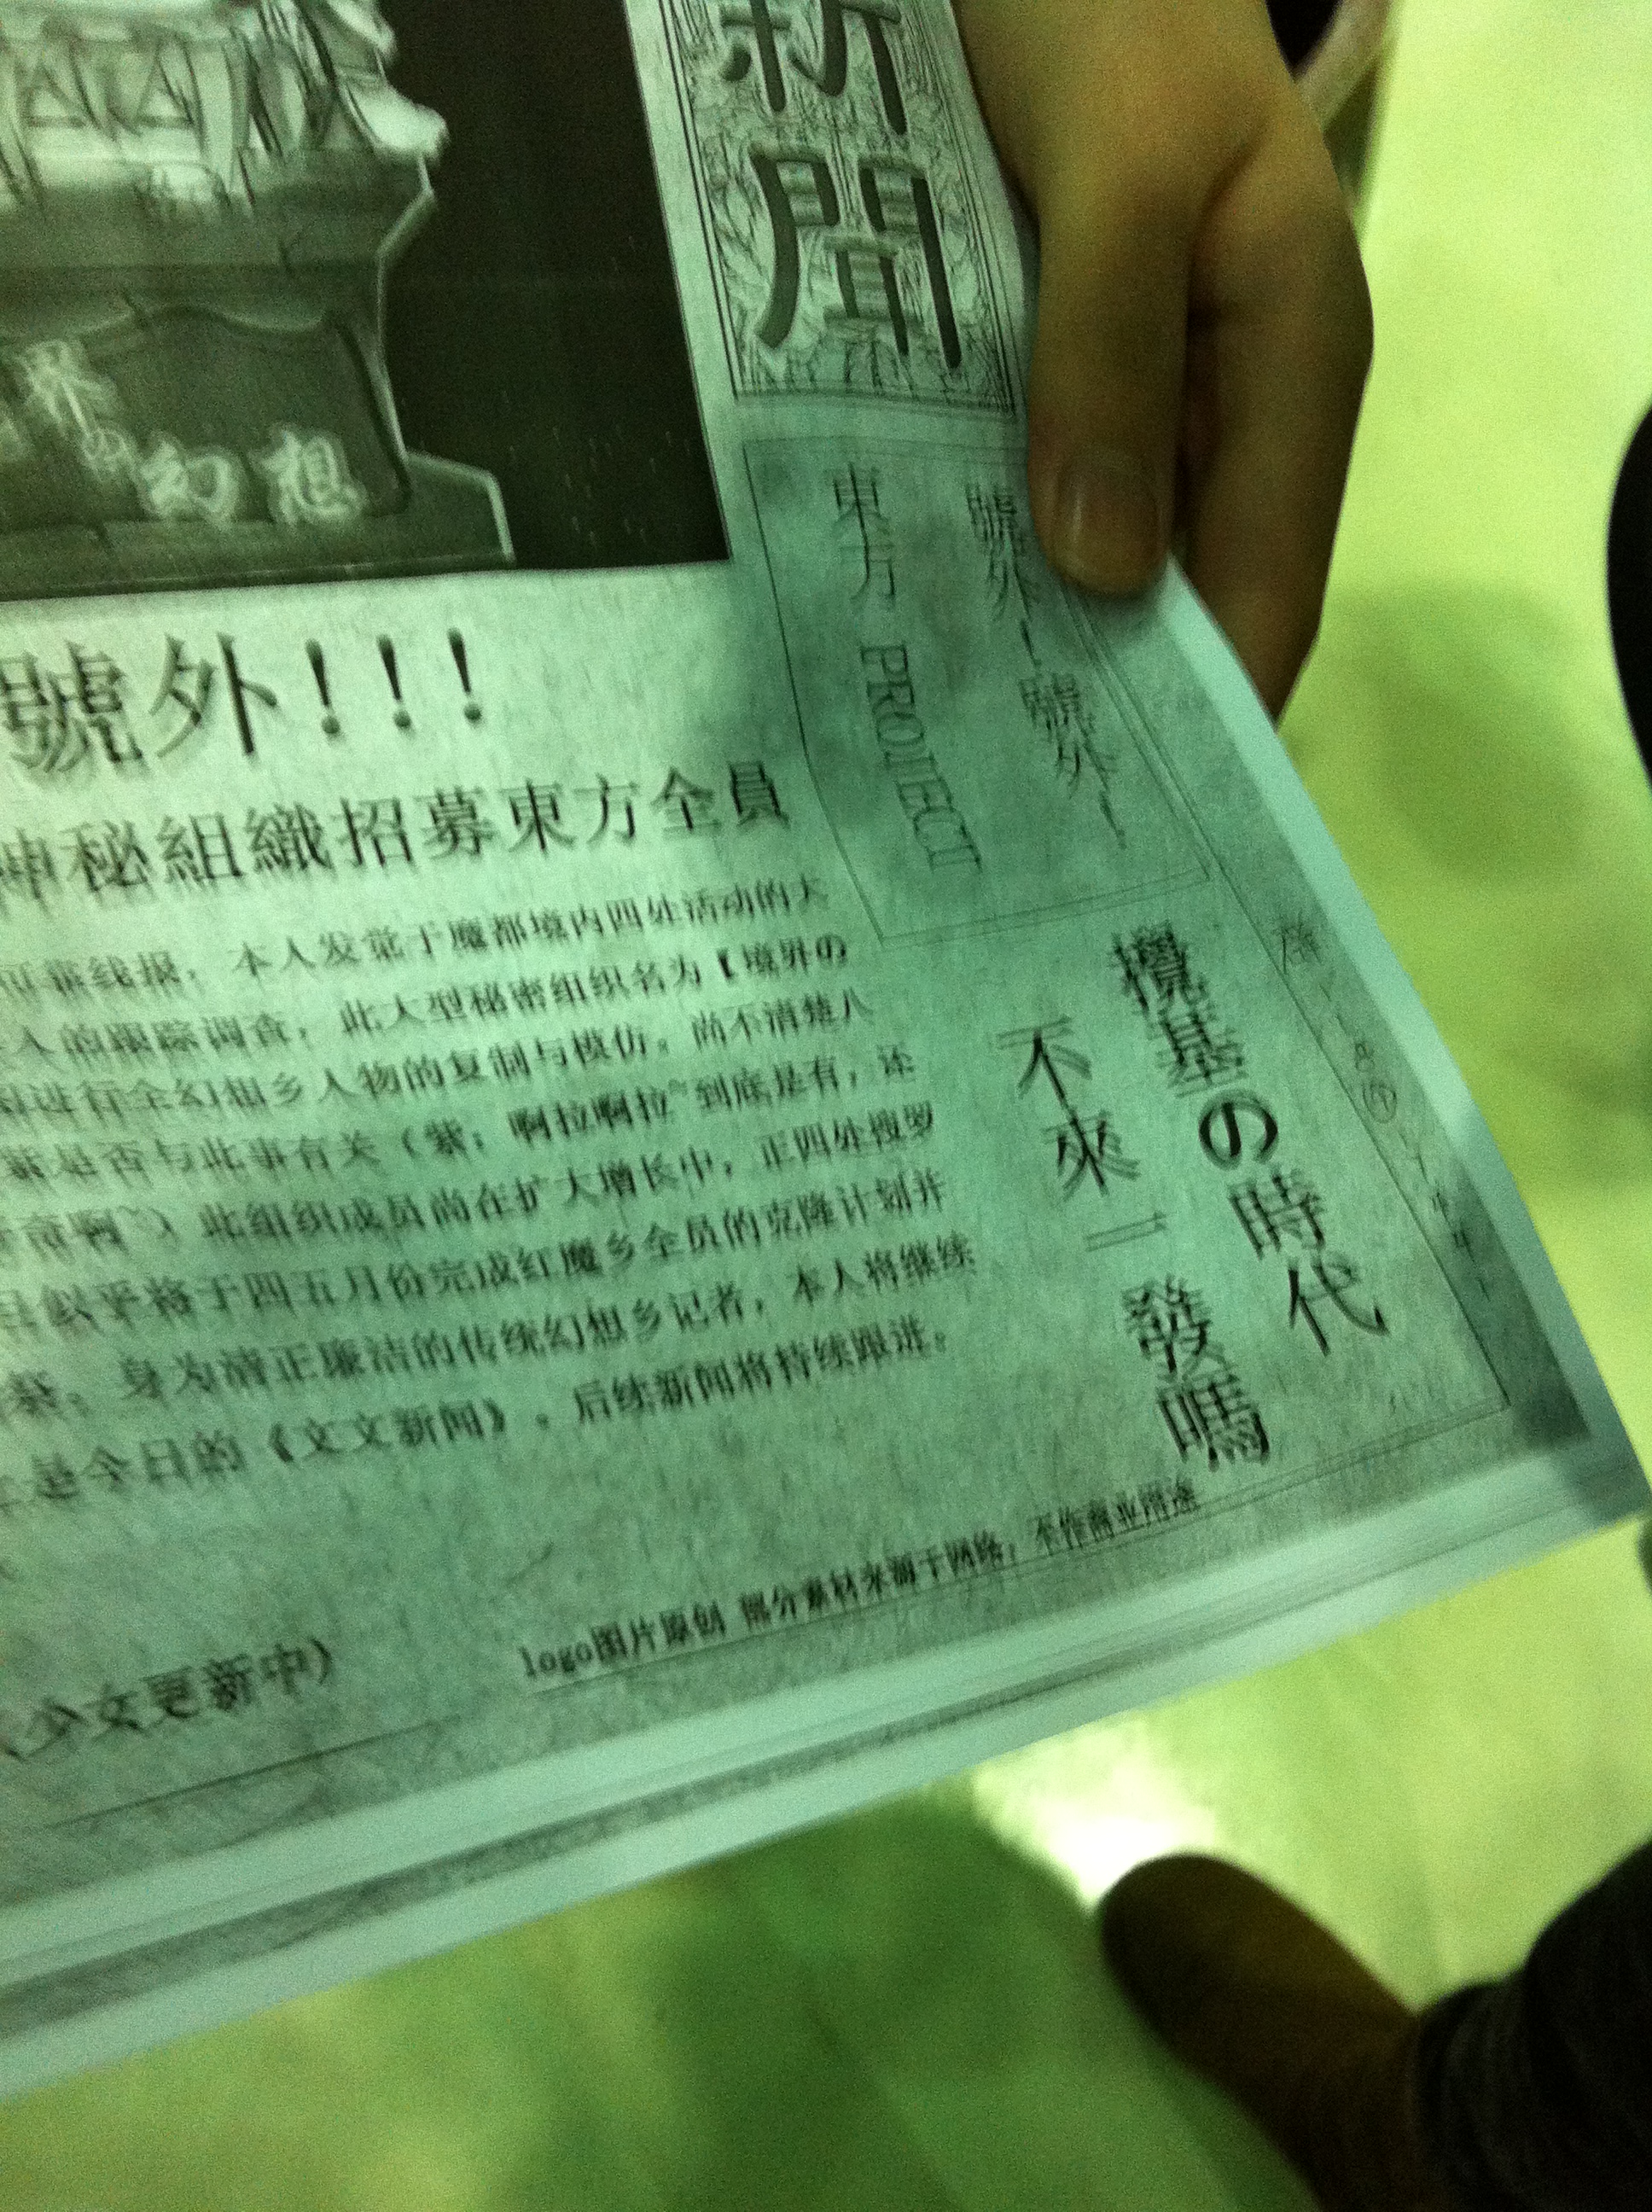 新聞
界の幻想
號外！號外！
東方 PROJECT
號外!!!
神秘組織招募東方全員
线报，本人发觉于魔都境内四处活动的大
人的跟踪调查，此大型秘密组织名为【境界の
进行全幻想乡人物的复制与模仿。尚不清楚八
是否与此事有关（紫：啊拉啊拉~到底是有，还
啊~）此组织成员尚在扩大增长中，正四处搜罗
且似乎将于四五月份完成红魔乡全员的克隆计划并
身为清正廉洁的传统幻想乡记者，本人将继续
是今日的《文文新闻》。后续新闻将持续跟进。
攪基の時代
不來一發嗎
(少女更新中)
logo图片原创 部分素材来源于网络，不作商业用途